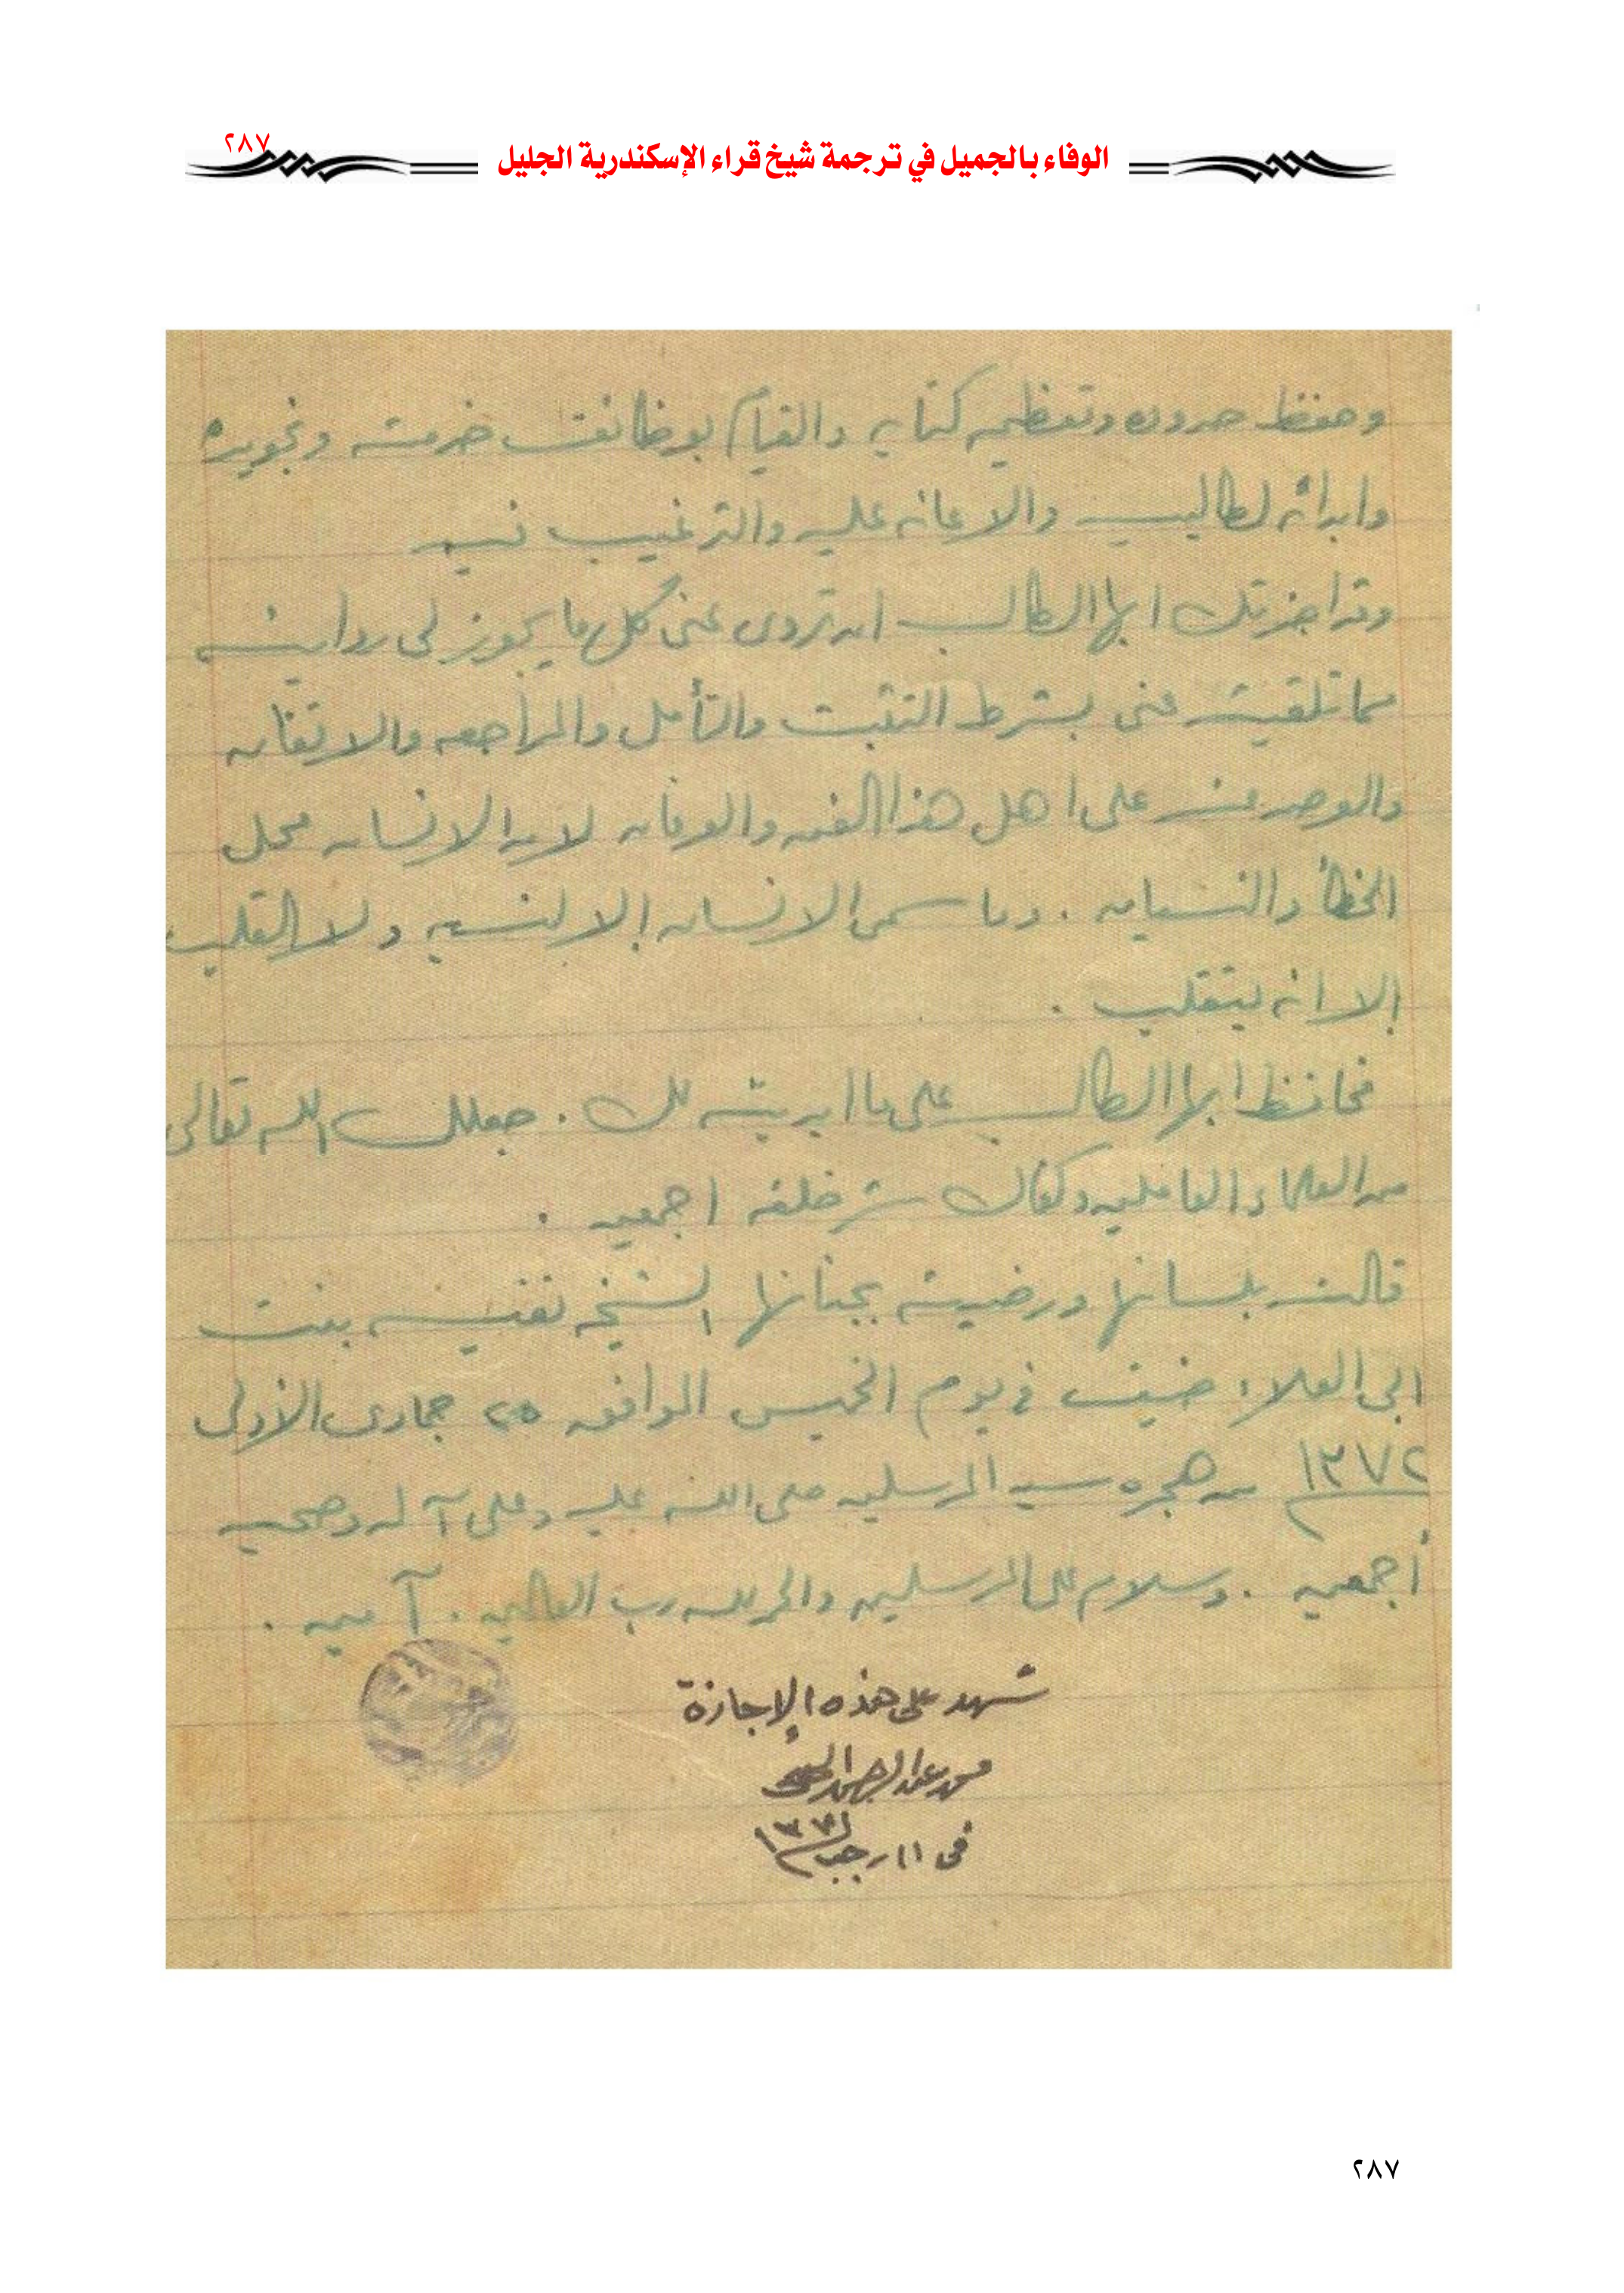 الوفاء بالجميل في ترجمة شيخ قراء الإسكندرية الجليل
٢٨٧
وحفظ حدوده وتعظيم كتابه والقيام بوظائف خدمته وتجويده
وابدائه لطالبيه والاعانه عليه والترغيب فيه
وقد اجزتك ايها الطالب ان تروى عنى كل ما يجوز لى روايته
مما تلقيته عنى بشرط التثبت والتأمل والمراجعه والاتقان
على اهل هذا الفن والعرفان لان الانسان محل
الخطأ والنسيان . وما سمى الانسان إلا لنسيه ولا القلب
إلا انه يتقلب .
فحافظ ايها الطالب على ما ابديته لك . جعلك الله تعالى
من العلماء العاملين وكفاك شر خلقه اجمعين .
قالته بلسانها ورضيته بجنانها الشيخه نفيسه بنت
ابى العلا ضيف فى يوم الخميس الموافق ٢٥ جمادى الأولى
١٣٧٢ من هجره سيد المرسلين صلى الله عليه وعلى آله وصحبه
أجمعين . وسلام على المرسلين والحمد لله رب العالمين . آمين .
شهد على هذه الإجازة
محمد عبد الرحمن
فى ١١ رجب
٢٨٧